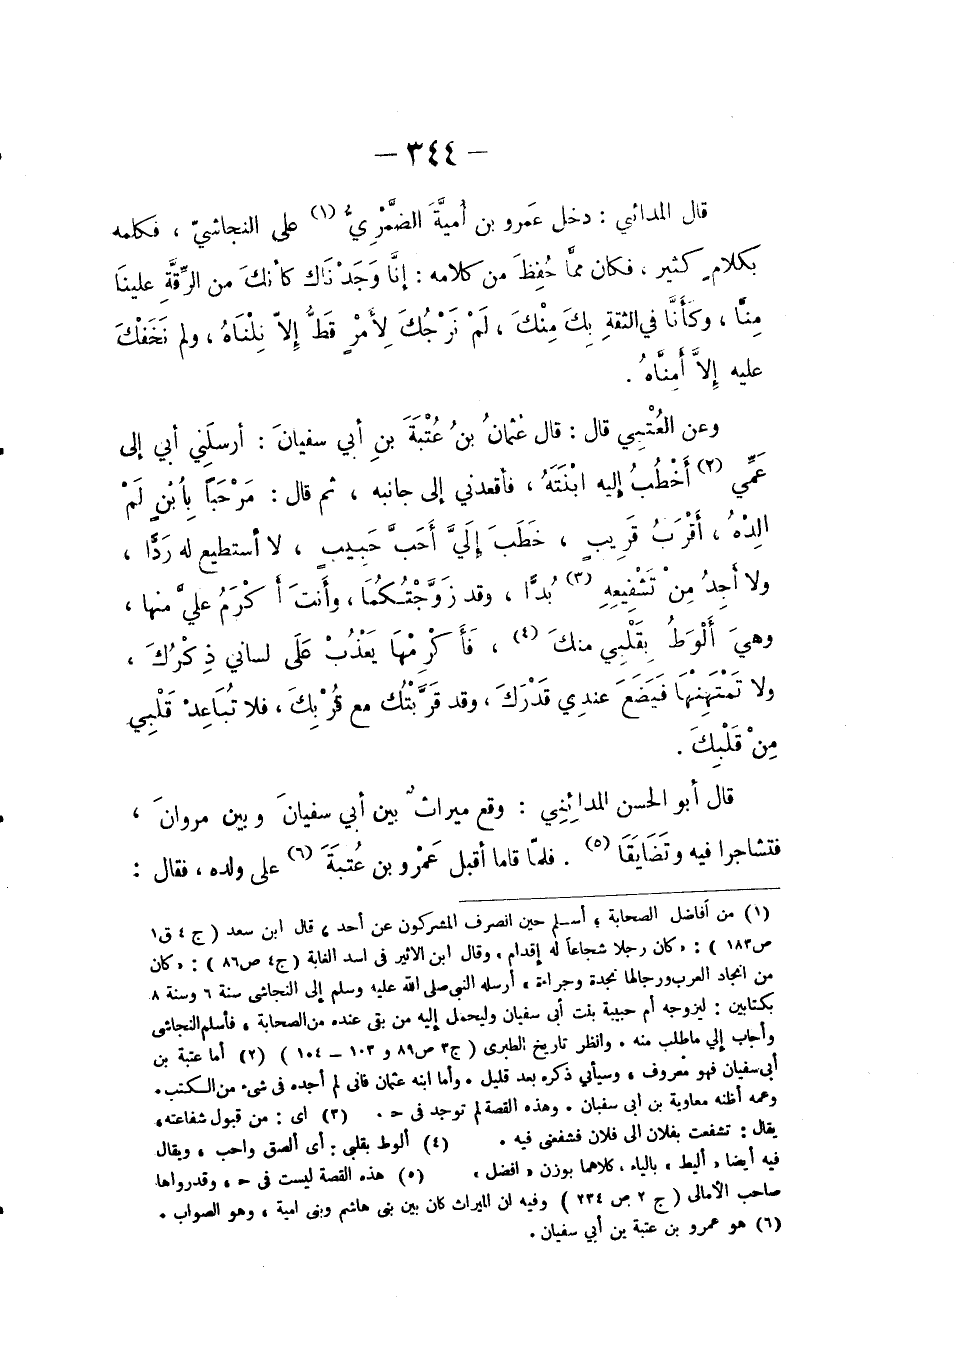 — ٣٤٤ —
قال المدائني : دخل عَمرو بن أُميةَ الضَّمْرِيُّ (١) على النجاشيّ ، فكلمه
بكلامٍ كثير ، فكان ممَّا حُفِظَ من كلامه : إنَّا وَجَدْنَاك كأنكَ من الرِّقَّةِ علينَا
مِنَّا ، وكَأَنَّا في الثقةِ بِكَ مِنْكَ ، لَمْ نَرْجُكَ لِأَمْرٍ قَطُّ إِلاّ نِلْنَاهُ ، ولم نَخَفْكَ
عليه إلاَّ أَمِنَّاهُ .
وعن العُتْبِي قال : قال عُثمانُ بنُ عُتْبَةَ بنِ أبي سفيانَ : أرسلَني أبي إلى
عَمِّي (٢) أَخْطُبُ إليه ابْنَتَهُ ، فأقعدني إلى جانبه ، ثم قال : مَرْحَباً بِأبْنٍ لَمْ
الِدْهُ ، أَقْرَبُ قَرِيبٍ ، خَطَبَ إِلَيَّ أَحَبَّ حَبِيبٍ ، لا أستطيع له رَدًّا ،
ولا أَجِدُ مِنْ تَشْفِيعِهِ (٣) بُدًّا ، وقد زَوَّجْتُكُمَا ، وأَنتَ أَكْرَمُ عليَّ منها ،
وهيَ أَلْوَطُ بِقَلْبِي منكَ (٤) ، فَأَكْرِمْهَا يَعْذُبْ عَلَى لساني ذِكْرُكَ ،
ولا تَمْتَهِنْهَا فَيَضَعَ عندِي قَدْرَكَ ، وقد قَرَّبْتُك مع قُرْبِكَ ، فلا تُبَاعِدْ قَلْبِي
مِنْ قَلْبِكَ .
قال أبو الحسن المدائِنِي : وقع ميراثٌ بين أبي سفيانَ وبين مروانَ ،
فتشاجروا فيه وتَضَايَقَا (٥) . فلمّا قاما أقبل عَمْرو بن عُتبَةَ (٦) على ولده ، فقال :
(١) من أفاضل الصحابة ، أسلم حين انصرف المشركون عن أحد ، قال ابن سعد ( ج ٤ ق ١
ص ١٨٣ ) : « كان رجلا شجاعاً له إقدام ، وقال ابن الاثير فى اسد الغابة ( ج٤ ص ٨٦ ) : « كان
من انجاد العرب ورجالها نجدة وجراءة ، أرسله النبي صلى الله عليه وسلم إلى النجاشى سنة ٦ وسنة ٨
بكتابين : ليزوجه أم حبيبة بنت أبى سفيان وليحمل إليه من بقى عنده من الصحابة ، فأسلم النجاشى
وأجاب إلي ماطلب منه . وانظر تاريخ الطبرى ( ج٣ ص ٨٩ و ١٠٣ — ١٠٤ ) (٢) أما عتبة بن
أبى سفيان فهو معروف ، وسيأتي ذكره بعد قليل . وأما ابنه عثمان فانى لم أجده فى شىء من الكتب .
وعمه أظنه معاوية بن ابى سفيان . وهذه القصة لم توجد فى ح . (٣) اى : من قبول شفاعته ،
يقال : تشفعت بفلان الى فلان فشفعنى فيه . (٤) ألوط بقلبى : أى ألصق واحب ، ويقال
فيه أيضا « أليط » بالياء ، كلاهما بوزن « افضل » (٥) هذه القصة ليست فى ح ، وقد رواها
صاحب الأمالى ( ج ٢ ص ٢٣٤ ) وفيه ان الميراث كان بين بنى هاشم وبنى امية ، وهو الصواب .
(٦) هو عمرو بن عتبة بن أبي سفيان .